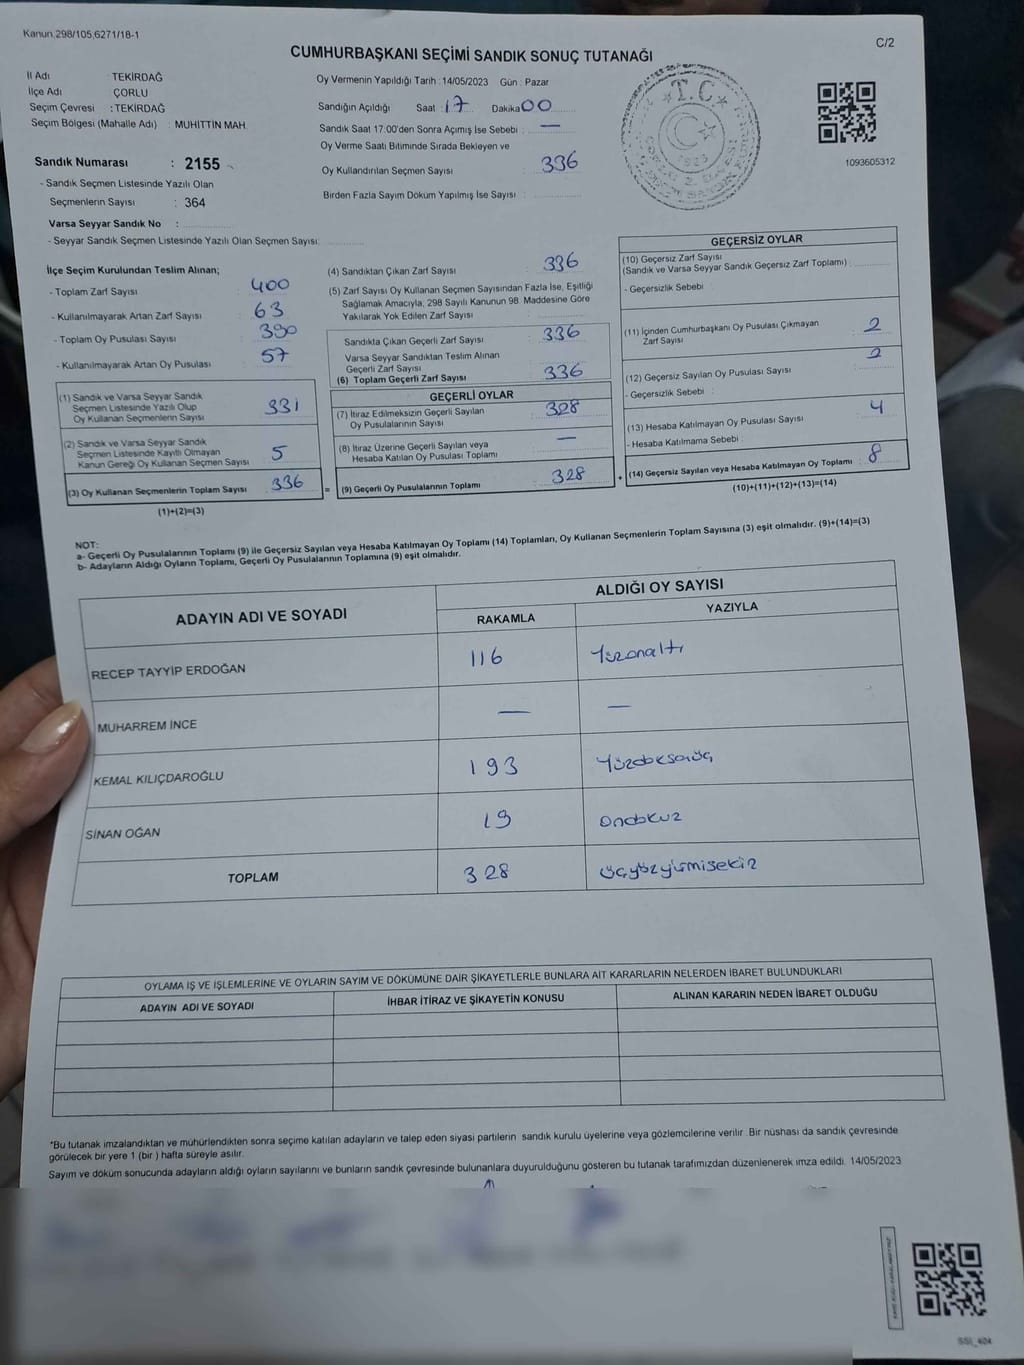 Kanun,298/105,6271/18-1
C/2
CUMHURBAŞKANI SEÇİMİ SANDIK SONUÇ TUTANAĞI
İl Adı : TEKİRDAĞ
İlçe Adı : ÇORLU
Seçim Çevresi : TEKİRDAĞ
Seçim Bölgesi (Mahalle Adı) : MUHİTTİN MAH.
Sandık Numarası : 2155
- Sandık Seçmen Listesinde Yazılı Olan
Seçmenlerin Sayısı : 364
Varsa Seyyar Sandık No :
- Seyyar Sandık Seçmen Listesinde Yazılı Olan Seçmen Sayısı:
Oy Vermenin Yapıldığı Tarih : 14/05/2023 Gün : Pazar
Sandığın Açıldığı Saat 17 Dakika 00
Sandık Saat 17:00'den Sonra Açımış İse Sebebi : —
Oy Verme Saati Bitiminde Sırada Bekleyen ve
Oy Kullandırılan Seçmen Sayısı : 336
Birden Fazla Sayım Döküm Yapılmış İse Sayısı :
T.C.
1923
1093605312
İlçe Seçim Kurulundan Teslim Alınan;
- Toplam Zarf Sayısı : 400
- Kullanılmayarak Artan Zarf Sayısı : 63
- Toplam Oy Pusulası Sayısı : 390
- Kullanılmayarak Artan Oy Pusulası : 57
(1) Sandık ve Varsa Seyyar Sandık
Seçmen Listesinde Yazılı Olup
Oy Kullanan Seçmenlerin Sayısı : 331
(2) Sandık ve Varsa Seyyar Sandık
Seçmen Listesinde Kayıtlı Olmayan
Kanun Gereği Oy Kullanan Seçmen Sayısı : 5
(3) Oy Kullanan Seçmenlerin Toplam Sayısı : 336
(1)+(2)=(3)
(4) Sandıktan Çıkan Zarf Sayısı : 336
(5) Zarf Sayısı Oy Kullanan Seçmen Sayısından Fazla İse, Eşitliği
Sağlamak Amacıyla, 298 Sayılı Kanunun 98. Maddesine Göre
Yakılarak Yok Edilen Zarf Sayısı :
Sandıkta Çıkan Geçerli Zarf Sayısı : 336
Varsa Seyyar Sandıktan Teslim Alınan
Geçerli Zarf Sayısı :
(6) Toplam Geçerli Zarf Sayısı : 336
GEÇERLİ OYLAR
(7) İtiraz Edilmeksizin Geçerli Sayılan
Oy Pusulalarının Sayısı : 328
(8) İtiraz Üzerine Geçerli Sayılan veya
Hesaba Katılan Oy Pusulası Toplamı : —
= (9) Geçerli Oy Pusulalarının Toplamı : 328
GEÇERSİZ OYLAR
(10) Geçersiz Zarf Sayısı
(Sandık ve Varsa Seyyar Sandık Geçersiz Zarf Toplamı) :
- Geçersizlik Sebebi :
(11) İçinden Cumhurbaşkanı Oy Pusulası Çıkmayan
Zarf Sayısı : 2
(12) Geçersiz Sayılan Oy Pusulası Sayısı : 2
- Geçersizlik Sebebi :
(13) Hesaba Katılmayan Oy Pusulası Sayısı : 4
- Hesaba Katılmama Sebebi :
+ (14) Geçersiz Sayılan veya Hesaba Katılmayan Oy Toplamı : 8
(10)+(11)+(12)+(13)=(14)
NOT:
a- Geçerli Oy Pusulalarının Toplamı (9) ile Geçersiz Sayılan veya Hesaba Katılmayan Oy Toplamı (14) Toplamları, Oy Kullanan Seçmenlerin Toplam Sayısına (3) eşit olmalıdır. (9)+(14)=(3)
b- Adayların Aldığı Oyların Toplamı, Geçerli Oy Pusulalarının Toplamına (9) eşit olmalıdır.
ADAYIN ADI VE SOYADI ALDIĞI OY SAYISI
RAKAMLA YAZIYLA
RECEP TAYYİP ERDOĞAN 116 Yüzonaltı
MUHARREM İNCE — —
KEMAL KILIÇDAROĞLU 193 Yüzdoksanüç
SİNAN OĞAN 19 Ondokuz
TOPLAM 328 üçyüzyirmisekiz
OYLAMA İŞ VE İŞLEMLERİNE VE OYLARIN SAYIM VE DÖKÜMÜNE DAİR ŞİKAYETLERLE BUNLARA AİT KARARLARIN NELERDEN İBARET BULUNDUKLARI
ADAYIN ADI VE SOYADI İHBAR İTİRAZ VE ŞİKAYETİN KONUSU ALINAN KARARIN NEDEN İBARET OLDUĞU
*Bu tutanak imzalandıktan ve mühürlendikten sonra seçime katılan adayların ve talep eden siyasi partilerin sandık kurulu üyelerine veya gözlemcilerine verilir. Bir nüshası da sandık çevresinde
görülecek bir yere 1 (bir ) hafta süreyle asılır.
Sayım ve döküm sonucunda adayların aldığı oyların sayılarını ve bunların sandık çevresinde bulunanlara duyurulduğunu gösteren bu tutanak tarafımızdan düzenlenerek imza edildi. 14/05/2023